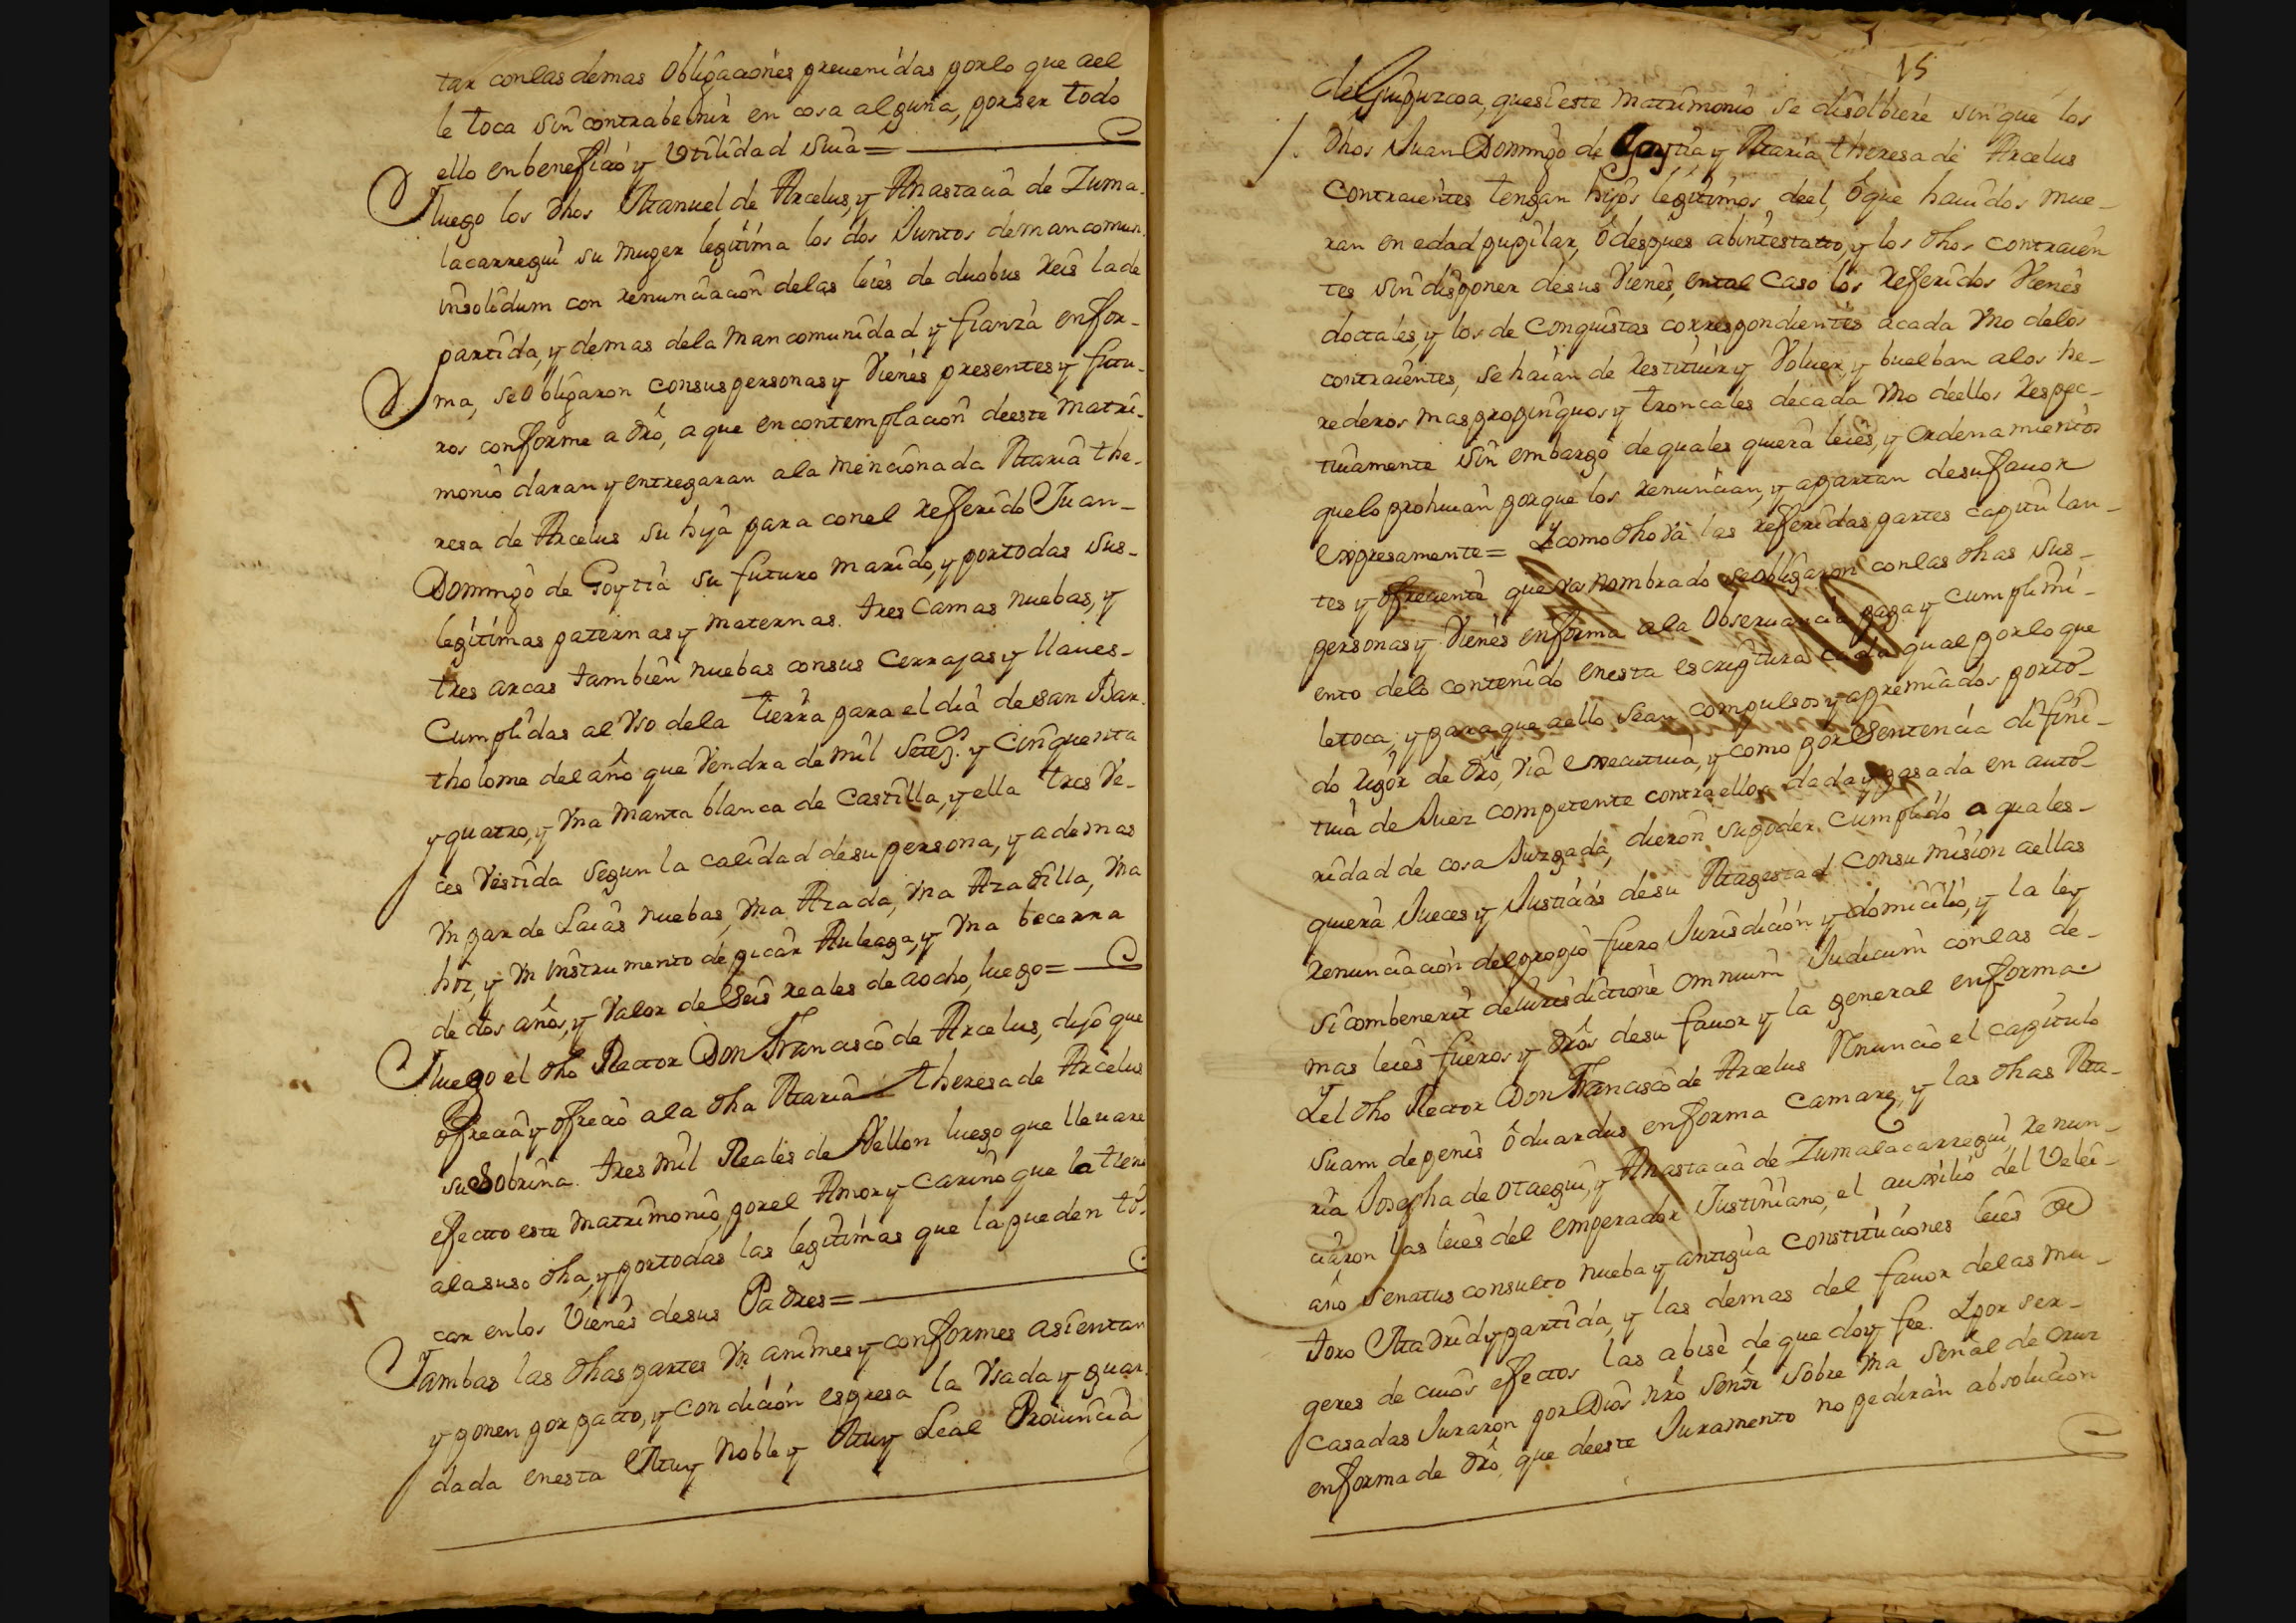 tar conlas demas Obligaciones preuenidas porlo que ael
le toca sin contrabenir en cosa alguna, por ser todo
ello enbeneficio y Utilidad suia=
Y luego los dhos Manuel de Arcelus, y Anastacia de Zuma-
lacarregui su muger legitima los dos Juntos de mancomun
insolidum con renunciacion delas leies de duobus reis la de
partida, y demas dela mancomunidad y fianza enfor-
ma, se Obligaron consus personas y Vienes presentes y futu-
ros conforme a dro, a que en contemplacion deeste matri-
monio daran y entregaran ala mencionada Maria the-
resa de Arcelus su hija para conel referido Juan-
Domingo de Goytia su futuro marido, y portodas sus-
legitimas paternas y maternas. tres camas nuebas, y
tres arcas tambien nuebas consus cerrajas y llaues-
Cumplidas al Vso dela tierra para el dia de san Bar-
tholome del año que Vendra de mil setez.s y cinquenta
y quatro, y Vna manta blanca de Castilla, y ella tres Ve-
ces Vestida segun la calidad desu persona, y ademas
Vn par de Laias nuebas, Vna Azada, Vna Azadilla, Vna
hoz, y Vn instrumento de picar Aulaga, y Vna becerra
de dos años, y Valor de seis reales de aocho, luego=
Y luego el dho Rector Don Francisco de Arcelus, dijo que
ofrecia y ofrecio ala dha Maria theresa de Arcelus
su Sobrina. tres mil Reales de Vellon luego que lleuare
efecto este matrimonio, porel Amor y cariño que la tiene
ala suso dha, y portodas las legitimas que la pueden to-
car enlos Vienes desus Padres=
Y ambas las dhas partes Vn animes y conformes asientan
y ponen por pacto, y condicion espresa la Vsada y guar-
dada enesta Muy Noble y Muy Leal Prouincia
15
de Guipuzcoa, que si este matrimonio se disolbiere sin que los
dhos Juan Domingo de Goytia y Maria theresa de Arcelus
contraientes tengan hijos legitimos deel, ò que hauidos mue-
ran en edad pupilar, ò despues abintestato, y los dhos contraien
tes sin disponer desus Vienes, ental caso los referidos Vienes
doctales, y los de conquistas correspondientes acada Vno delos
contraientes, se haian de restituir y Voluer, y buelban alos he-
rederos mas propinquos y troncales decada Vno deellos respec-
tiuamente sin embargo de quales quiera leies, y ordenamientos
quelo prohiuan porque los renuncian, y apartan desufauor
expresamente= Y como dho Va las referidas partes capitulan-
tes y ofreciente que Va nombrado se obligaron conlas dhas sus-
personas y Vienes enforma ala Obseruancia paga y cumplimi-
ento delo contenido enesta escriptura cada qual porlo que
letoca, y para que aello sean compulsos y apremiados porto-
do rigor de dro, Via executiua, y como por sentencia difini-
tiua de Juez competente contra ellos dada y pasada en auto-
ridad de cosa Juzgada, dieron su poder cumplido a quales-
quiera Jueces y Justicias desu Magestad consu mision aellas
renunciacion del propio fuero Jurisdicion y domicilio, y la ley
sicombenerit de iurisdictione omnium Judicum conlas de-
mas leies fueros y dros desu fauor y la general enforma=
Y el dho Rector Don Francisco de Arcelus Renuncio el capitulo
suam de penis oduardus enforma camare, y las dhas Ma-
ria Josepha de Otaegui, y Anastacia de Zumalacarregui, renun-
ciaron las leies del emperador Justiniano, el auxilio del Velei-
ano senatus consulto nueba y antigua constituciones leies de
toro Madrid y partida, y las demas del fauor delas mu-
geres de cuios efectos las abise de que doy fee. Y por ser-
casadas Juraron por Dios nro señor sobre Vna señal de cruz
enforma de dro, que deeste Juramento no pediran absolucion